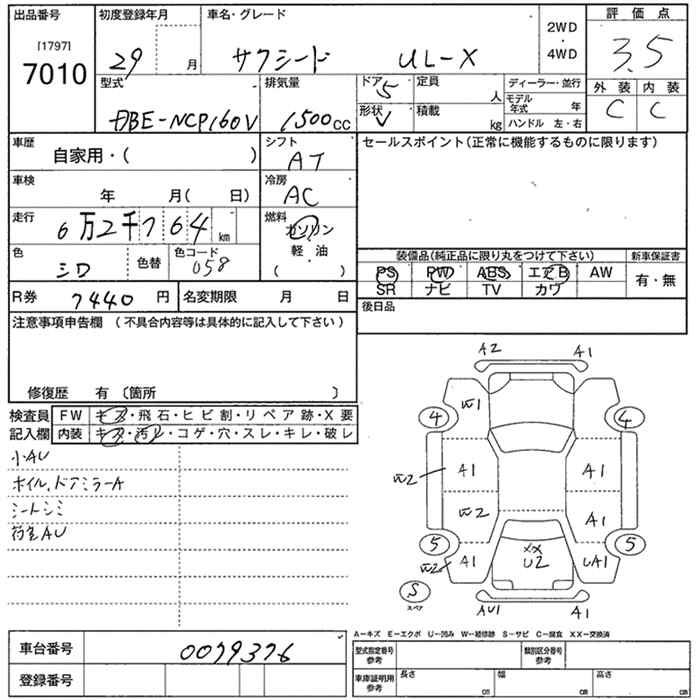 出品番号 初度登録年月 車名・グレード 2WD ・ 4WD 評価点
[1797] 7010 29 月 サクシード UL-X 3.5
型式 排気量 ドア 5 定員 人 ディーラー・並行 外装 内装
DBE-NCP160V 1500cc 形状 V 積載 kg モデル年式 年 C C
ハンドル 左・右
車歴 自家用・( ) シフト AT セールスポイント(正常に機能するものに限ります)
車検 年 月( 日) 冷房 AC
走行 6万2千764 km 燃料 ガソリン
軽・油
・
( )
色 シロ 色替 色コード 058
装備品(純正品に限り丸をつけて下さい) 新車保証書
PS PW ABS エアB AW 有・無
SR ナビ TV カワ
R券 7440 円 名変期限 月 日 後日品
注意事項申告欄 (不具合内容等は具体的に記入して下さい)
修復歴 有 〔箇所 〕
検査員 FW キズ・飛石・ヒビ割・リペア跡・X要
記入欄 内装 キズ・汚レ・コゲ・穴・スレ・キレ・破レ
小AU
ホイル,ドアミラーA
シートシミ
荷室AU
A2 A1
W1
4 4
W2 A1 A1
W2 A1
5 5
W2 A1 XX U2 UA1
S スペア
AU1 A1
A-キズ E-エクボ U-凹み W-補修跡 S-サビ C-腐食 XX-交換済
車台番号 0079376 型式指定番号 参考 類別区分番号 参考
登録番号 車庫証明用 参考 長さ cm 幅 cm 高さ cm